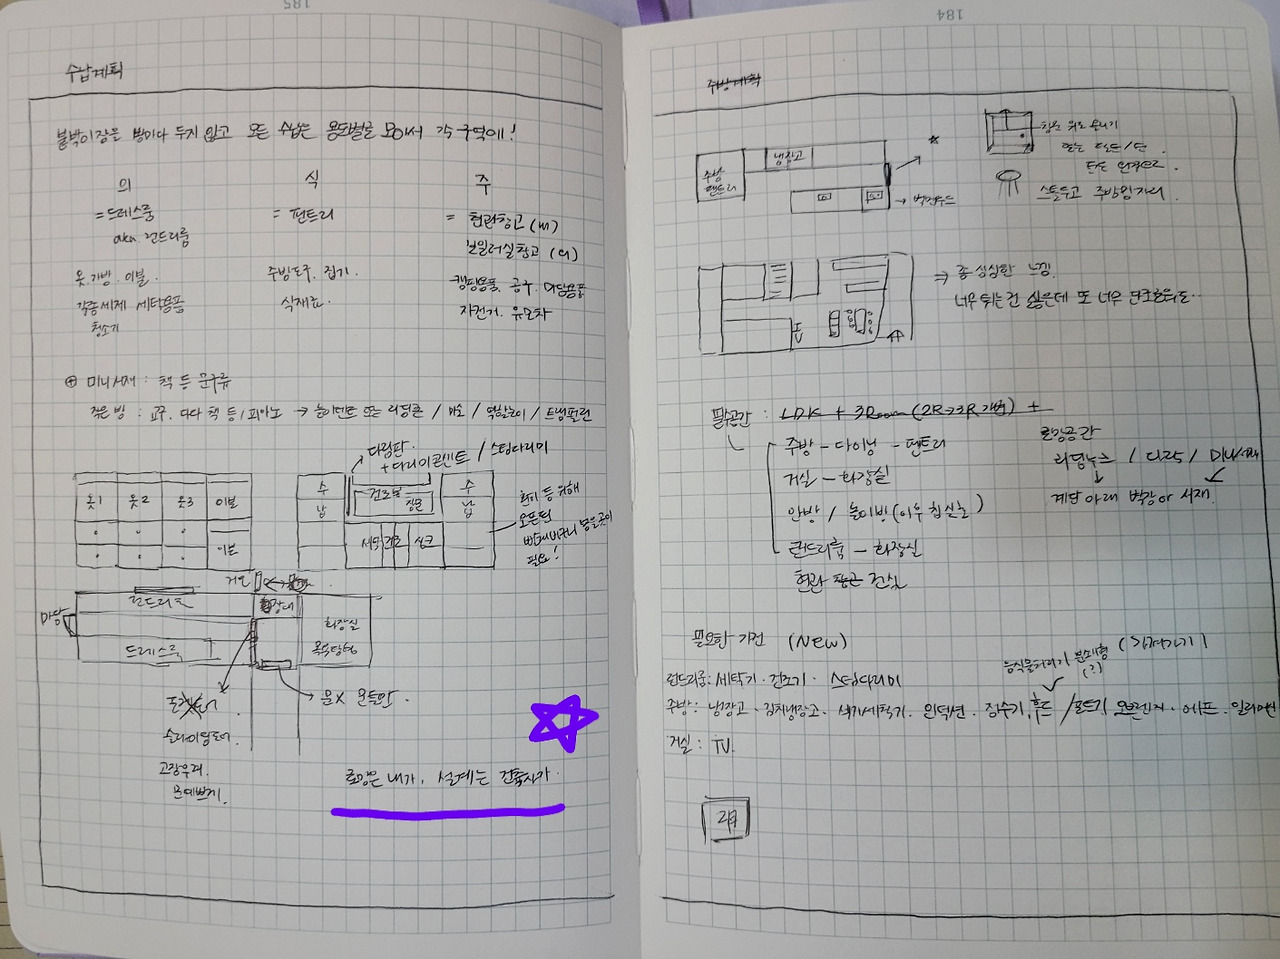 185
수납계획
붙박이장을 방마다 두지 않고 모든 수납은 용도별로 모아서 각 구역에!
의
= 드레스룸
aka. 런드리룸
옷. 가방. 이불.
각종세제 세탁용품
청소기
식
= 팬트리
주방도구. 집기.
식재료.
주
= 현관창고 (m)
보일러실창고 (a)
캠핑용품. 공구. 마당용품
자전거. 유모차
⊕ 미니서재 : 책 등 문구류
작은 방 : 교구. 책 등, 피아노 → 놀이텐트 또는 리딩존 / 미소 / 역할놀이 / 트램펄린
다림판.
+ 다리미콘센트 / 스팀다리미
옷1 옷2 옷3 이불
이불
수납
건조봉
수납
세탁 건조 싱크
환기 등 위해
오픈된
빨래바구니 놓을 곳이
필요!
거울
마당
런드리룸
드레스룸
화장대
화장실
욕실
슬라이딩도어
고장우려.
문예쁘게.
→ 문X 오픈만.
로망은 내가, 설계는 건축사가.
184
주방계획
주방
팬트리
냉장고
→ 빅전후드
창문 위로 열리기
또는
스툴두고 주방앞자리
⇒ 좀 심심한 느낌.
너무 튀는건 싫은데 또 너무 단조로워도…
필수공간 : LDK + 3Room (2R→3R 개변) +
주방 - 다이닝 - 팬트리
거실 - 화장실
안방 / 놀이방 (이후 침실로)
런드리룸 - 화장실
현관 전실
로망공간
리딩누크 / 다락 / 미니서재
계단 아래 벽장 or 서재.
필요한 가전 (NEW)
음식물처리기 분쇄형 (?)
런드리룸 : 세탁기. 건조기. 스팀다리미
주방 : 냉장고. 김치냉장고. 식기세척기. 인덕션. 정수기, 후드 / 오븐레인지. 에프.
거실 : TV.